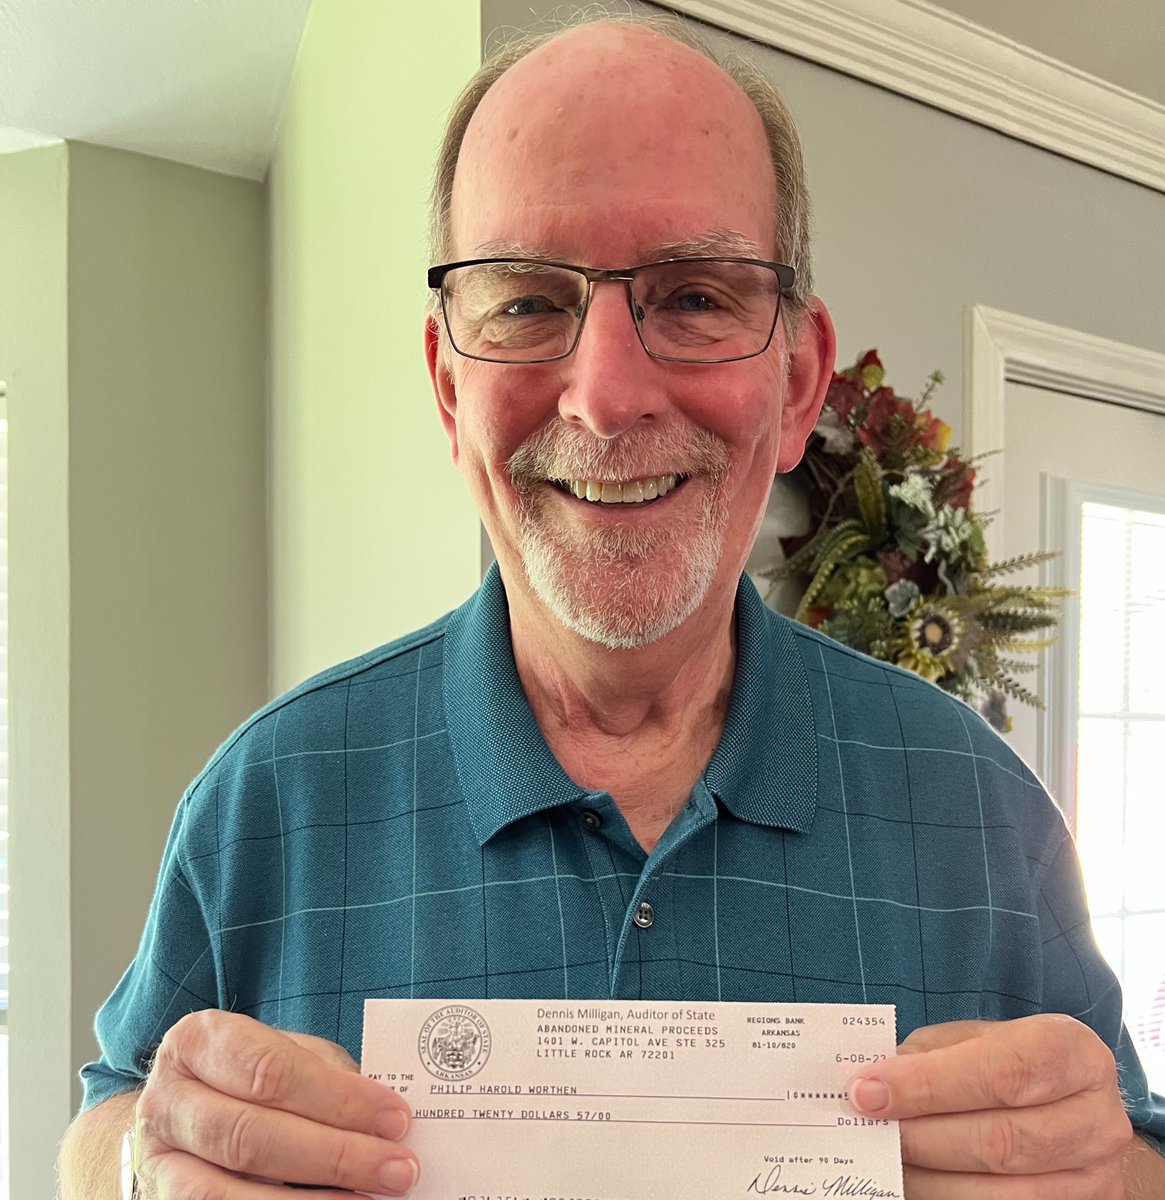 SEAL OF THE AUDITOR OF STATE
ARKANSAS
Dennis Milligan, Auditor of State
ABANDONED MINERAL PROCEEDS
1401 W. CAPITOL AVE STE 325
LITTLE ROCK AR 72201
REGIONS BANK
ARKANSAS
81-10/820
024354
6-08-23
PAY TO THE
OF
PHILIP HAROLD WORTHEN
$******
HUNDRED TWENTY DOLLARS 57/00
Dollars
Void after 90 Days
Dennis Milligan